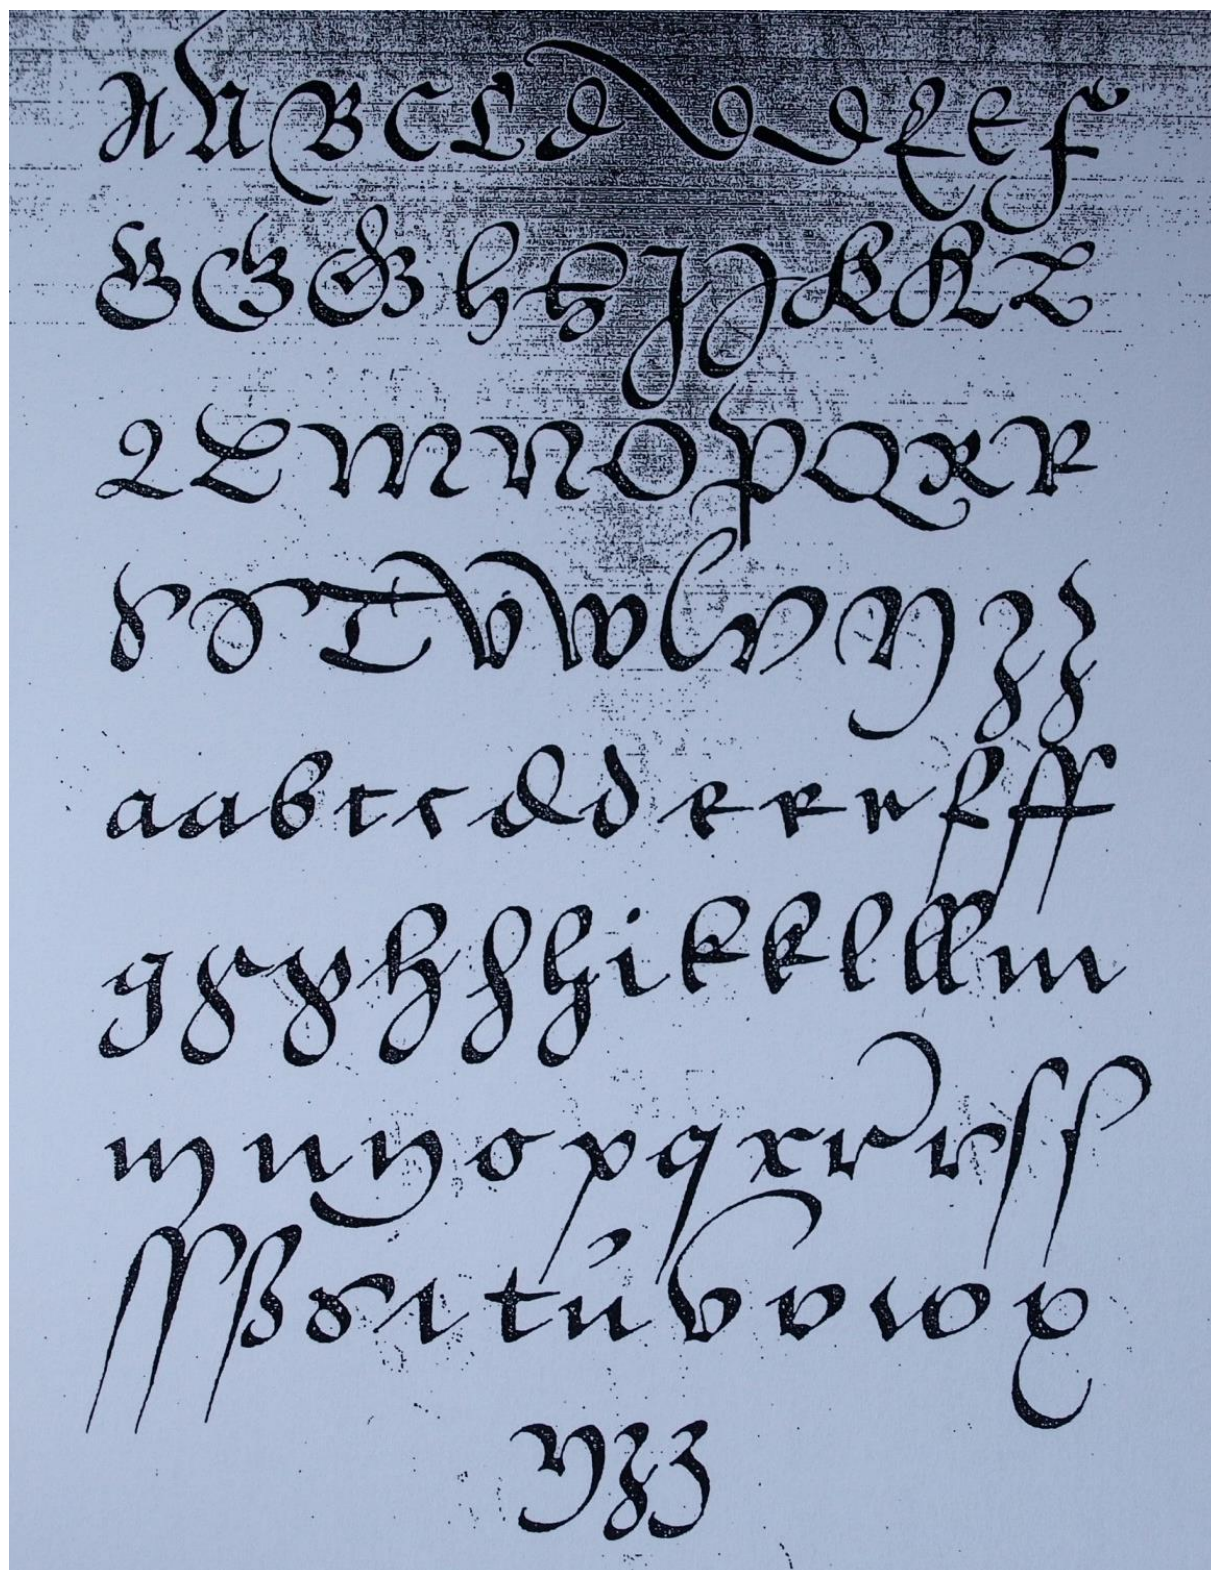 A A B C C D D D E E F
G G G H H I J K K L
L L M N O P Q R R
S S T V W C V Y Z Z
a a b c c d d e e e f ff
g g g h h h i k k l ll m
m n y o p q r r r ſ ſ
ſſ ſſ ß s t t ú v v w x
y z z